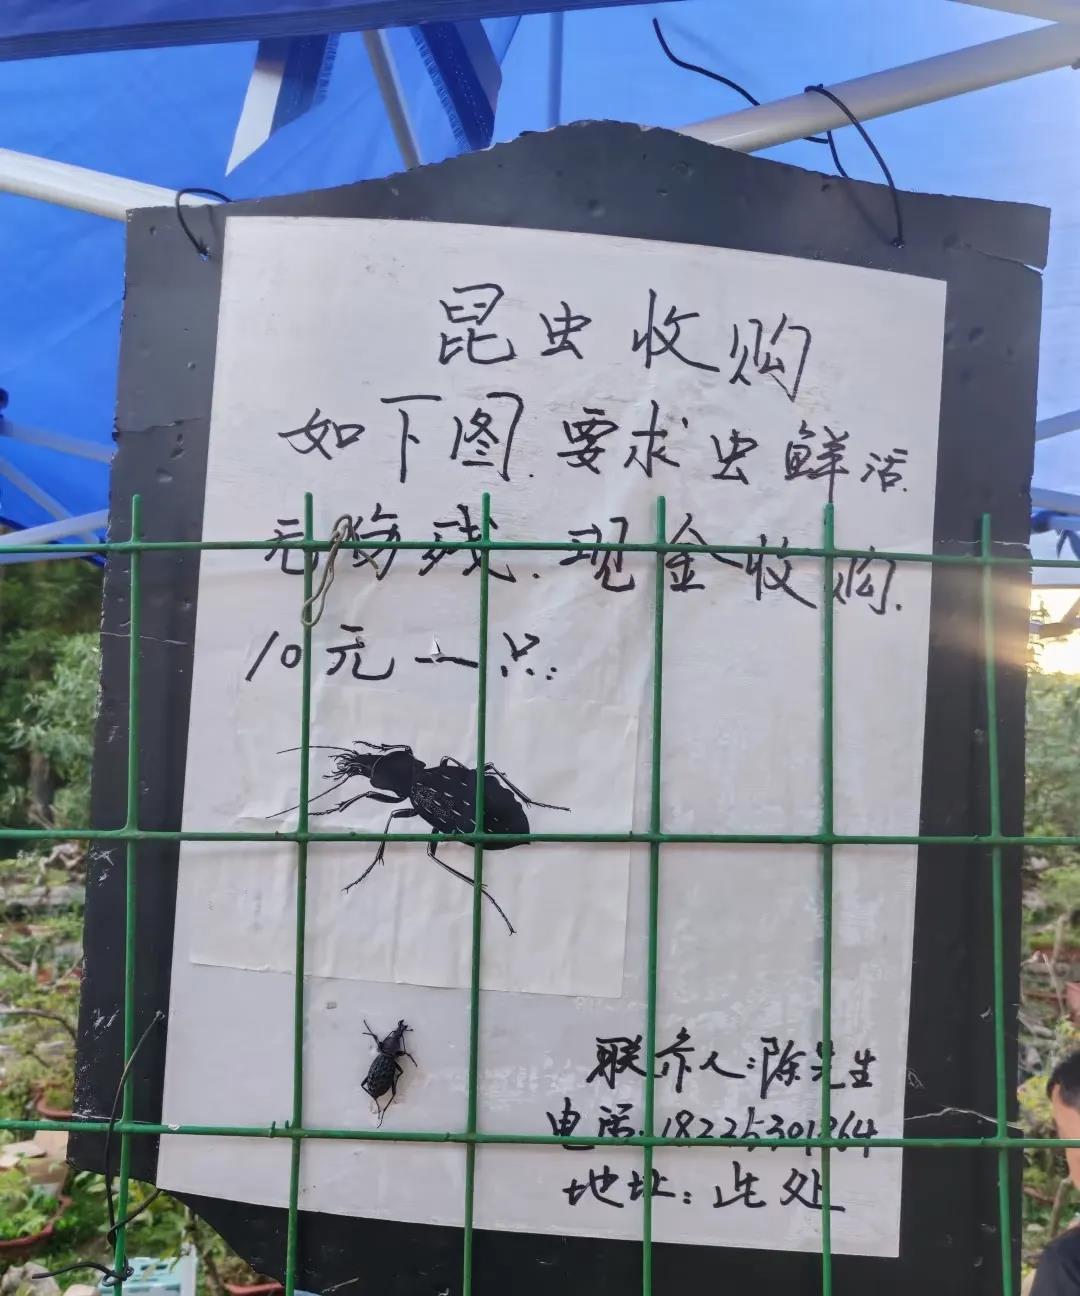 昆虫收购
如下图.要求虫鲜活.
无伤残.现金收购.
10元一只:
联系人:徐先生
电话:18225301264
地址:此处